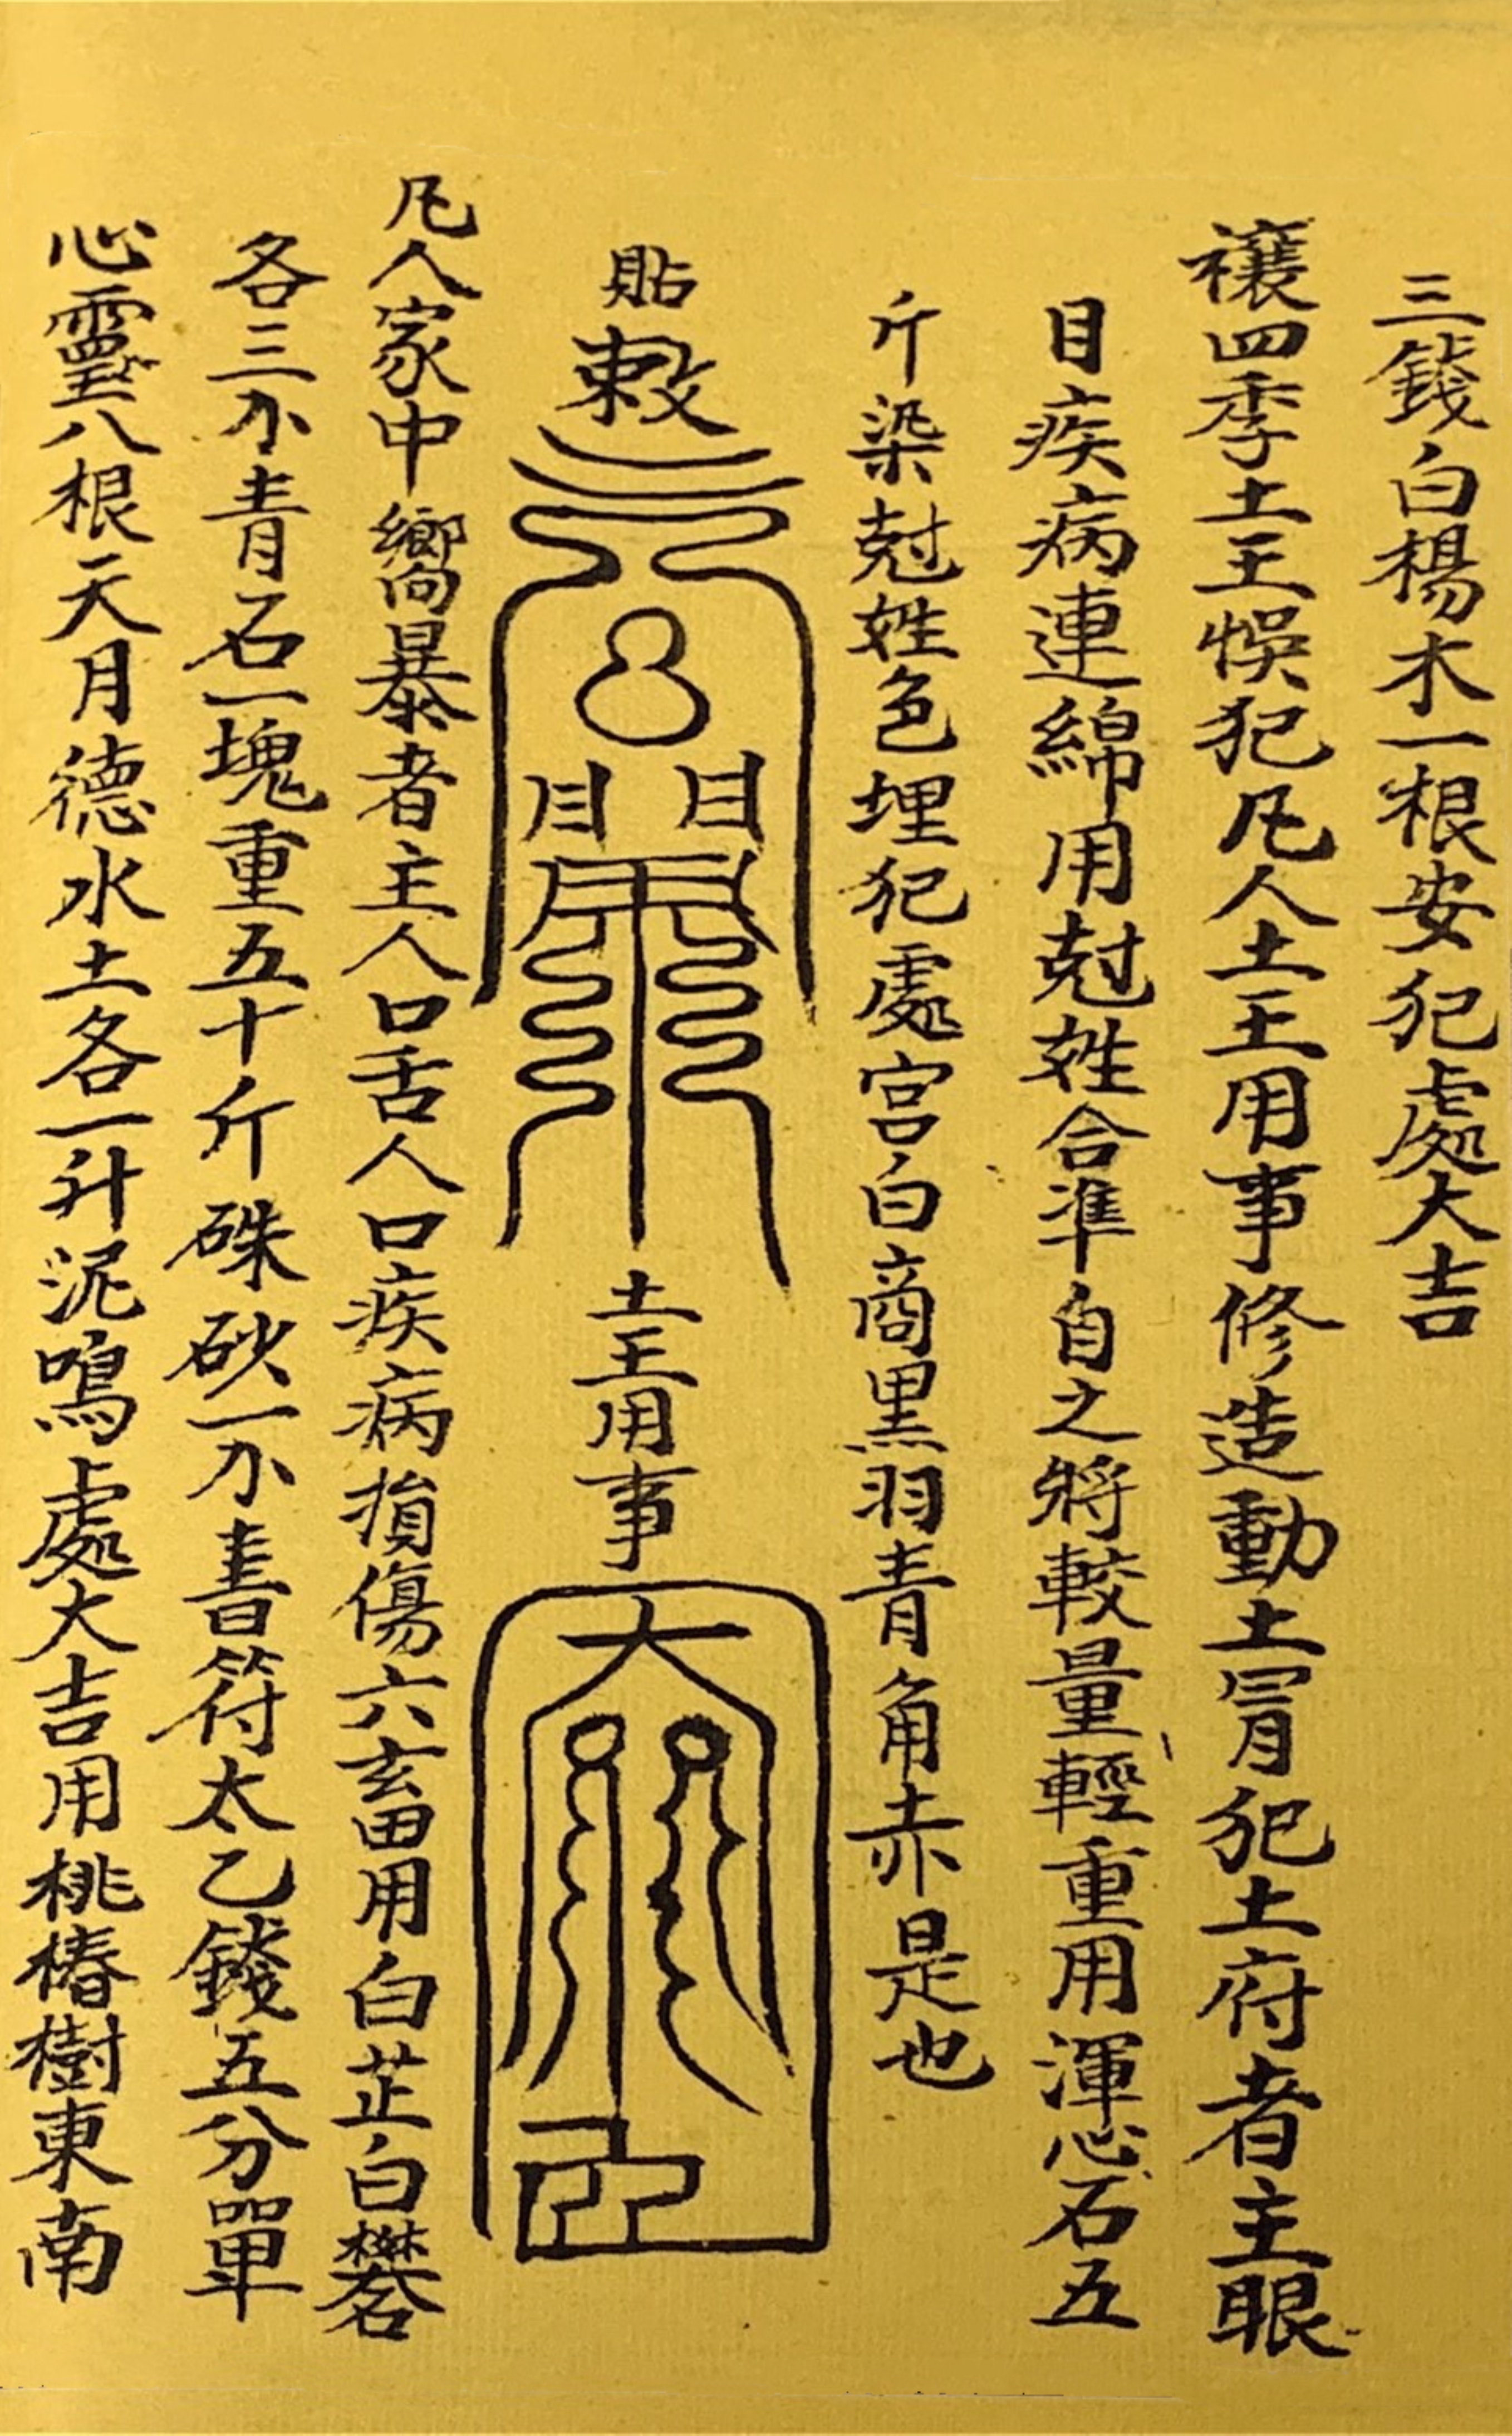 三錢白楊木一根安犯處大吉
禳四季土王悞犯凡人土王用事修造動土冐犯土府者主眼
目疾病連綿用尅姓合準自之將較量輕重用渾心石五
斤染尅姓色埋犯處宫白商黑羽青角赤是也
貼敕
土王用事
凡人家中嚮暴者主人口舌人口疾病損傷六畜用白芷白礬
各三小青石一塊重五十斤硃砂一小書符太乙錢五分單
心靈八根天月德水土各一升泥鳴處大吉用桃椿樹東南